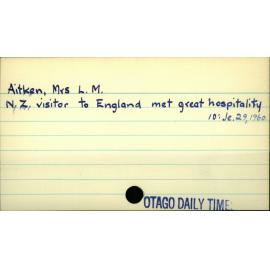 Aitken, Mrs L. M.
N.Z. visitor to England met great hospitality
10: Je. 29, 1960.
OTAGO DAILY TIME